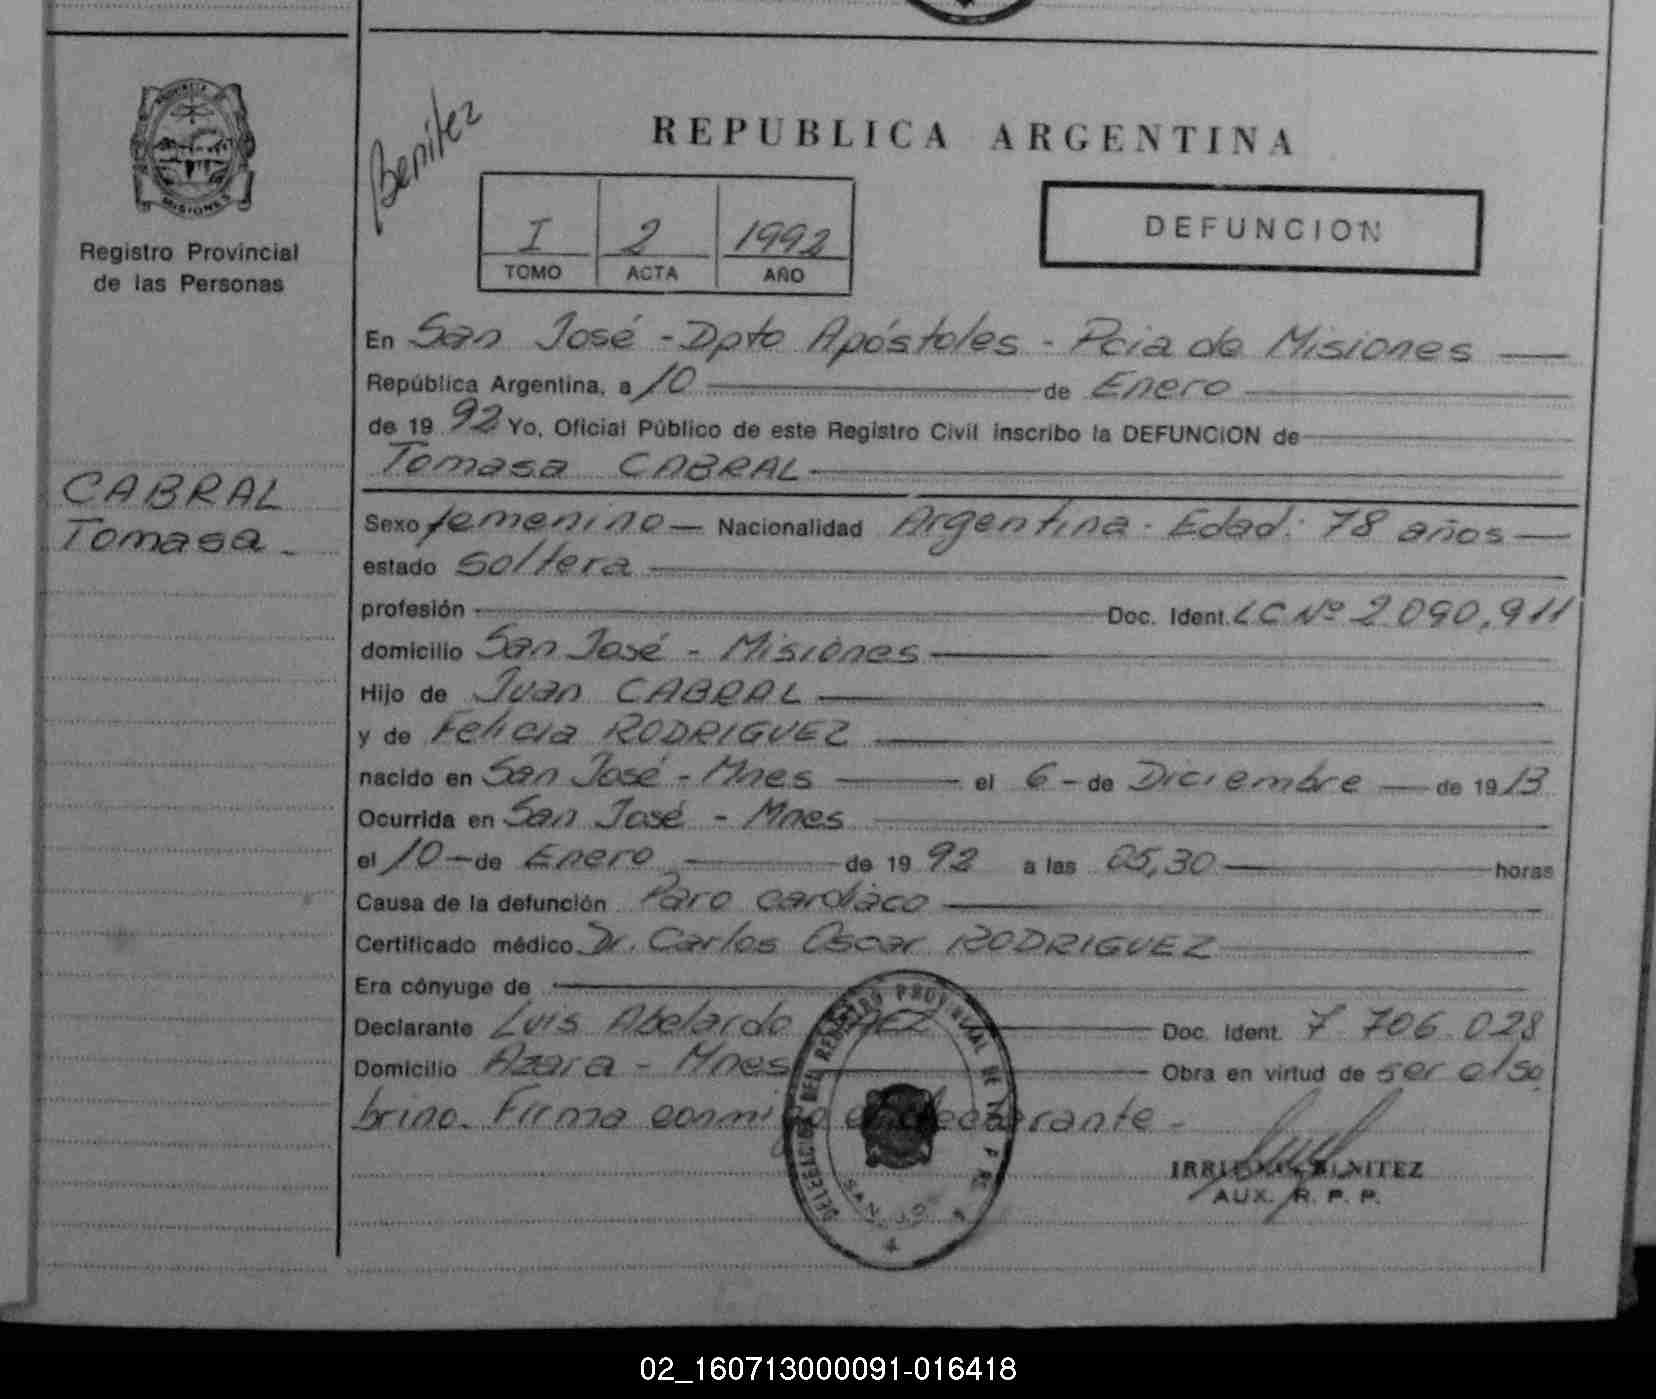 PROVINCIA
MISIONES
Registro Provincial
de las Personas
CABRAL
Tomasa -
Benitez
REPUBLICA ARGENTINA
I 2 1992
TOMO ACTA AÑO
DEFUNCION
En San José - Dpto Apóstoles - Pcia de Misiones
República Argentina, a 10 de Enero
de 19 92 Yo, Oficial Público de este Registro Civil inscribo la DEFUNCION de
Tomasa CABRAL
Sexo femenino - Nacionalidad Argentina - Edad: 78 años
estado soltera
profesión Doc. Ident. LC Nº 2.090.911
domicilio San José - Misiones
Hijo de Juan CABRAL
y de Felicia RODRIGUEZ
nacido en San José - Mnes el 6 - de Diciembre de 19 13
Ocurrida en San José - Mnes
el 10 - de Enero de 19 92 a las 05,30 horas
Causa de la defunción Paro cardíaco
Certificado médico Dr. Carlos Oscar RODRIGUEZ
Era cónyuge de
Declarante Luis Abelardo Doc. Ident. 7 706 028
Domicilio Azara - Mnes Obra en virtud de ser el so
brino. Firma conmigo declarante -
DELEGACION DEL REGISTRO PROVINCIAL DE
SAN JOSE
BENITEZ
AUX. R. P. P.
02_160713000091-016418